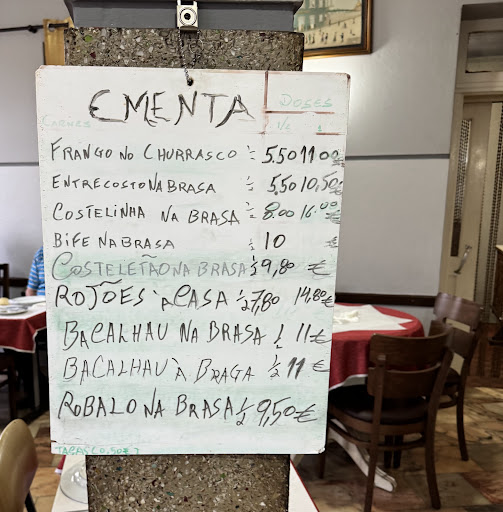 EMENTA
DOSES
CARNES 1/2 1
FRANGO NO CHURRASCO 1/2 5.50 11.00 €
ENTRECOSTO NA BRASA 1/2 5.50 10,50 €
COSTELINHA NA BRASA 1/2 8.00 16.00 €
BIFE NA BRASA 1/2 10 €
COSTELETÃO NA BRASA 1/2 9,80 €
ROJÕES À CASA 1/2 7,80 14,80 €
BACALHAU NA BRASA 1/2 11 €
BACALHAU À BRAGA 1/2 11 €
ROBALO NA BRASA 1/2 9,50 €